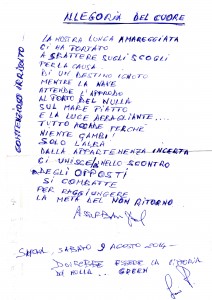 ALLEGORIA DEL CUORE
CONTENZIOSO IRRISOLTO
LA NOSTRA LUNGA AMAREGGIATA
CI HA PORTATO
A SBATTERE SUGLI SCOGLI
PER LA CAUSA
DI UN DESTINO IGNOTO
MENTRE LA NAVE
ATTENDE L'APPRODO
AL PORTO DEL NULLA
SUL MARE PIATTO
E LA LUCE ABBAGLIANTE...
TUTTO ACCADE PERCHÉ
NIENTE CAMBI!
SOLO L'ALBA
DALLA APPARTENENZA INCERTA
CI UNISCE NELLO SCONTRO
DEGLI OPPOSTI
SI COMBATTE
PER RAGGIUNGERE
LA META DEL NON RITORNO
SABATO 9 AGOSTO 2014
DOVREBBE ESSER LA
DI